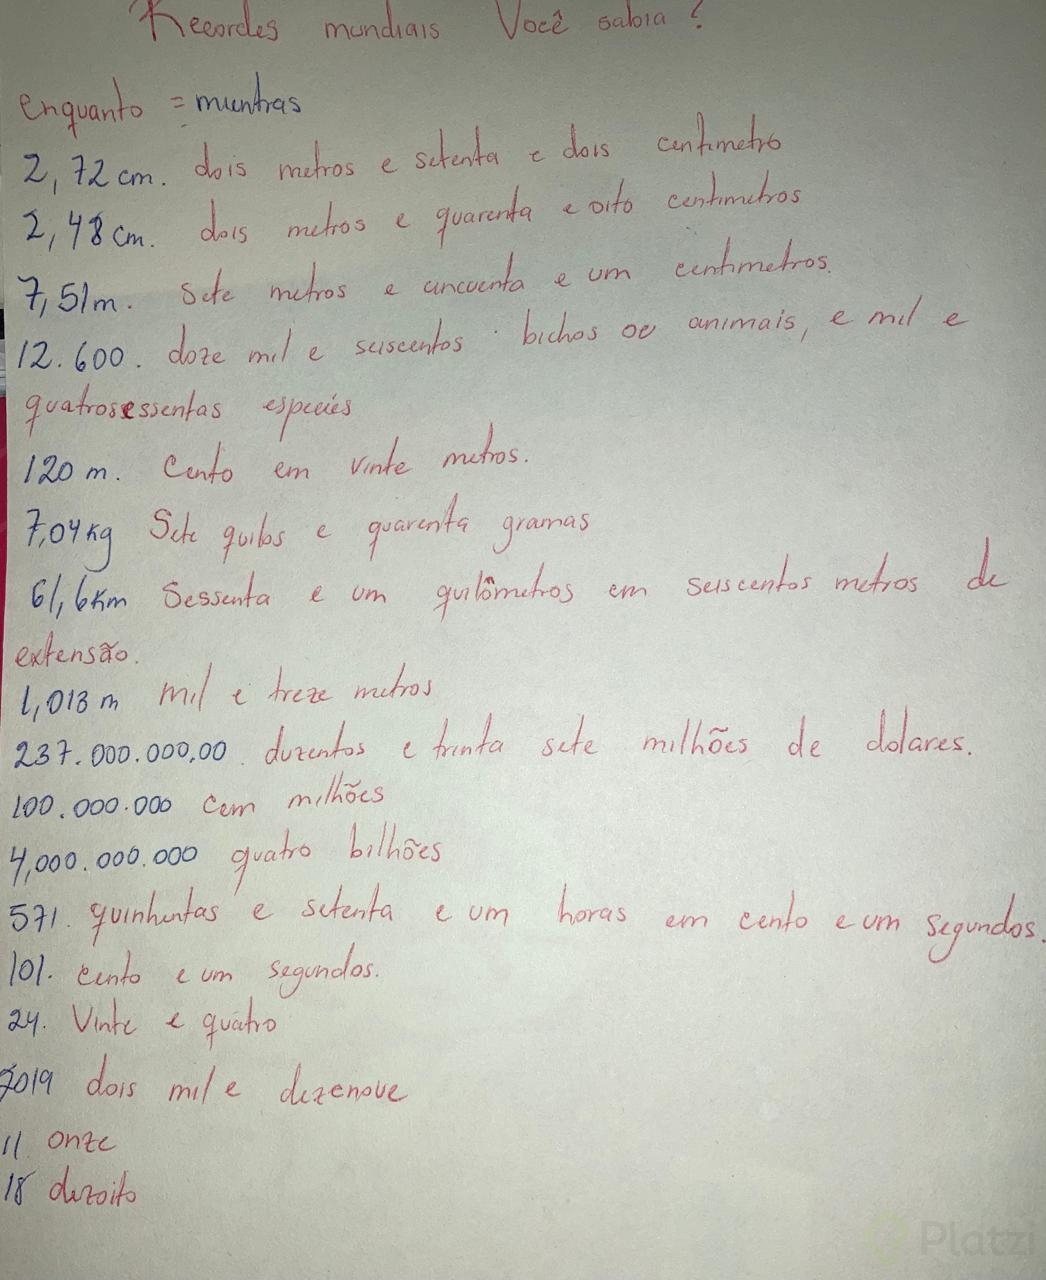 Recordes mundiais Você sabia ?
enquanto = mientras
2,72 cm. dois metros e setenta e dois centimetro
2,48 cm. dois metros e quarenta e oito centimetros
7,51m. Sete metros e cincuenta e um centimetros.
12.600. doze mil e seiscentos . bichos ou animais, e mil e
quatrosessentas especies
120 m. Cento em vinte metros.
7,04 kg Sete quilos e quarenta gramas
61,6 Km Sessenta e um quilômetros em seiscentos metros de
extensão.
1,013 m mil e treze metros
237.000.000,00. duzentos e trinta sete milhões de dolares.
100.000.000 Cem milhões
4,000.000.000 quatro bilhões
571. quinhentas e setenta e um horas em cento e um segundos.
101. cento e um segundos.
24. Vinte e quatro
2019 dois mil e dezenove
11 onze
18 dezoito
Platzi